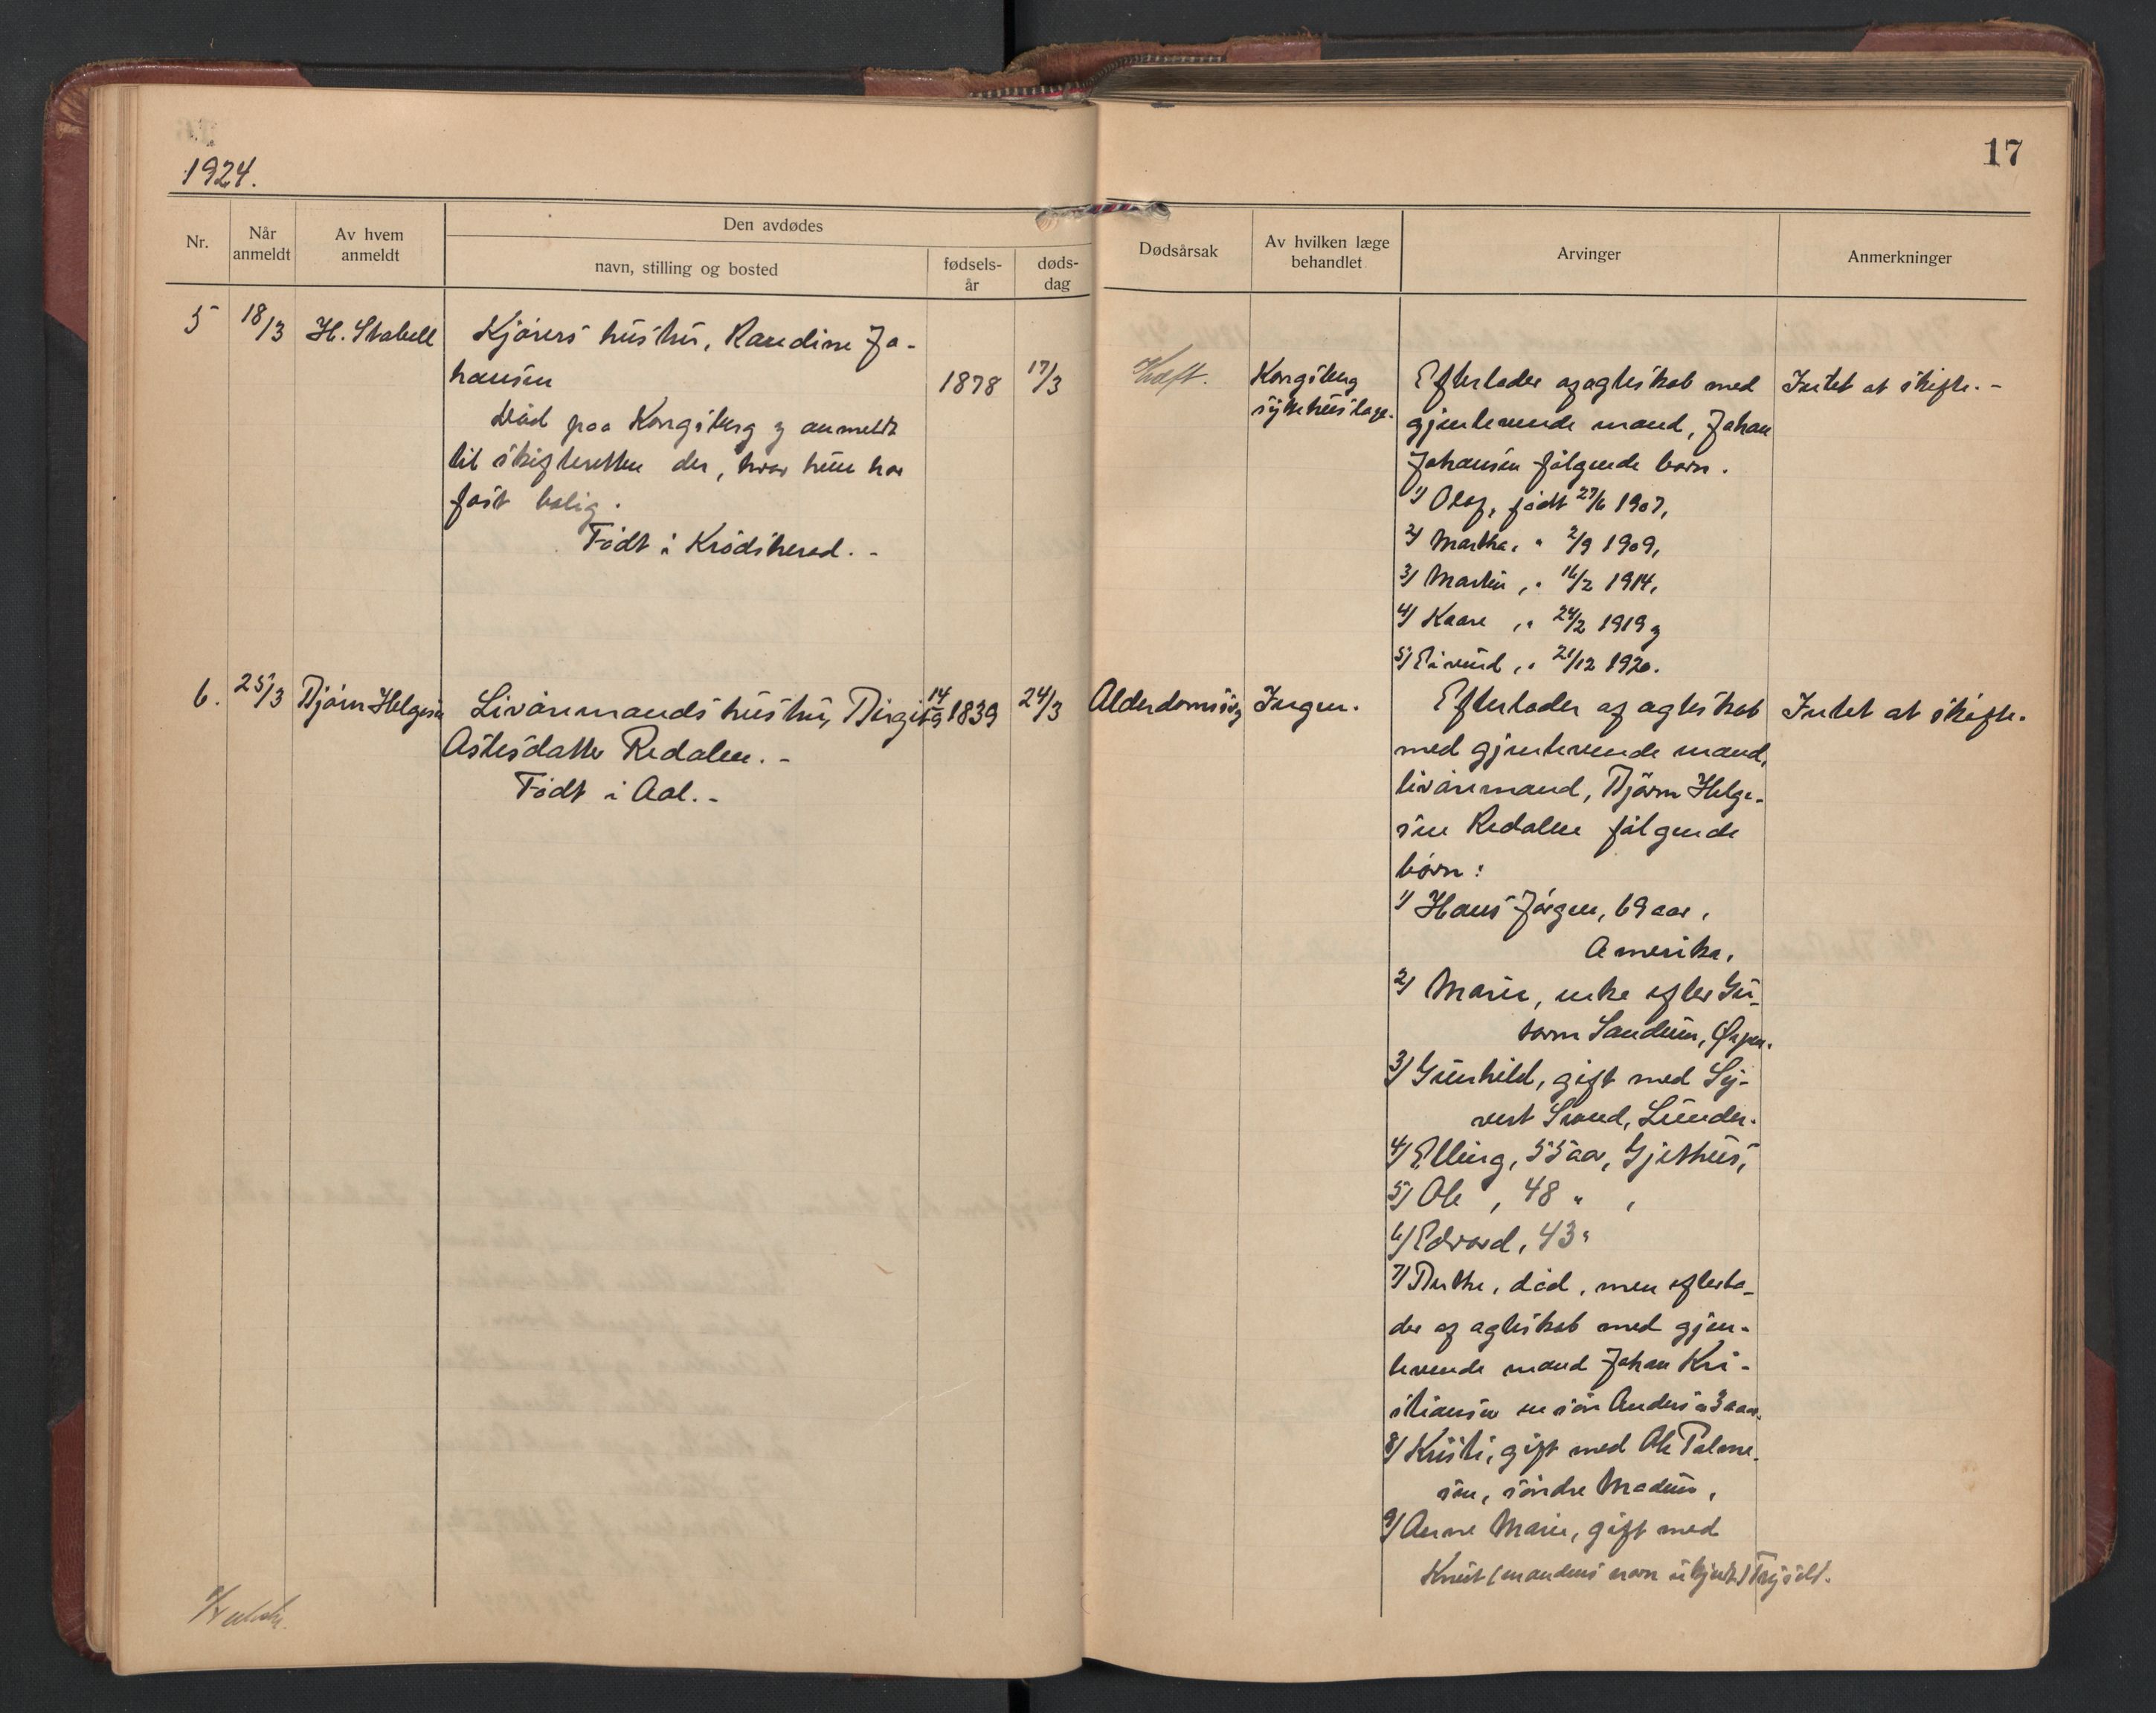 1924.
17
Nr.
Når anmeldt
Av hvem anmeldt
Den avdødes
navn, stilling og bosted
fødsels-
år
døds-
dag
Dødsårsak
Av hvilken læge
behandlet
Arvinger
Anmerkninger
5
18/3
H. Stabell
Kjørers hustru, Randine Jo-
hansen
Død paa Kongsberg og anmeldt
til skifteretten der, hvor hun har
fast bolig.
Født i Krødsherad. -
1878
17/3
Kræft.
Kongsberg
sykehuslæge.
Efterlader af ægteskab med
gjenlevende mand, Johan
Johansen følgende børn.
1) Olaf, født 27/6 1907,
2) Martha, " 2/9 1909,
3) Martin, " 16/2 1914,
4) Kaare, " 24/2 1919 og
5) Eivind, " 21/12 1920.
Intet at skifte. -
6.
25/3
Bjørn Helgesen
Livøremands hustru, Birgit
Aslesdatter Redalen. -
Født i Aal. -
14/9 1839
24/3
Alderdomssvg
Ingen.
Efterlader af ægteskab
med gjenlevende mand,
livøremand, Bjørn Helge-
sen Redalen følgende
børn:
1) Hans Jørgen, 69 aar,
Amerika,
2) Marie, enke efter Gu-
torm Sandum,
3) Gunhild, gift med Sy-
vert Strand, Lunder.
4) Elling, 55 aar, Gjethus,
5) Ole, 48 " ,
6) Edvard, 43 "
7) Berthe, død, men efterla-
der af ægteskab med gjen-
levende mand Johan Kri-
stiansen en søn Anders 3 aar.
8) Kristi, gift med Ole Palme-
sen, søndre Modum,
9) Anne Marie, gift med
Knut (mandens navn ukjendt)